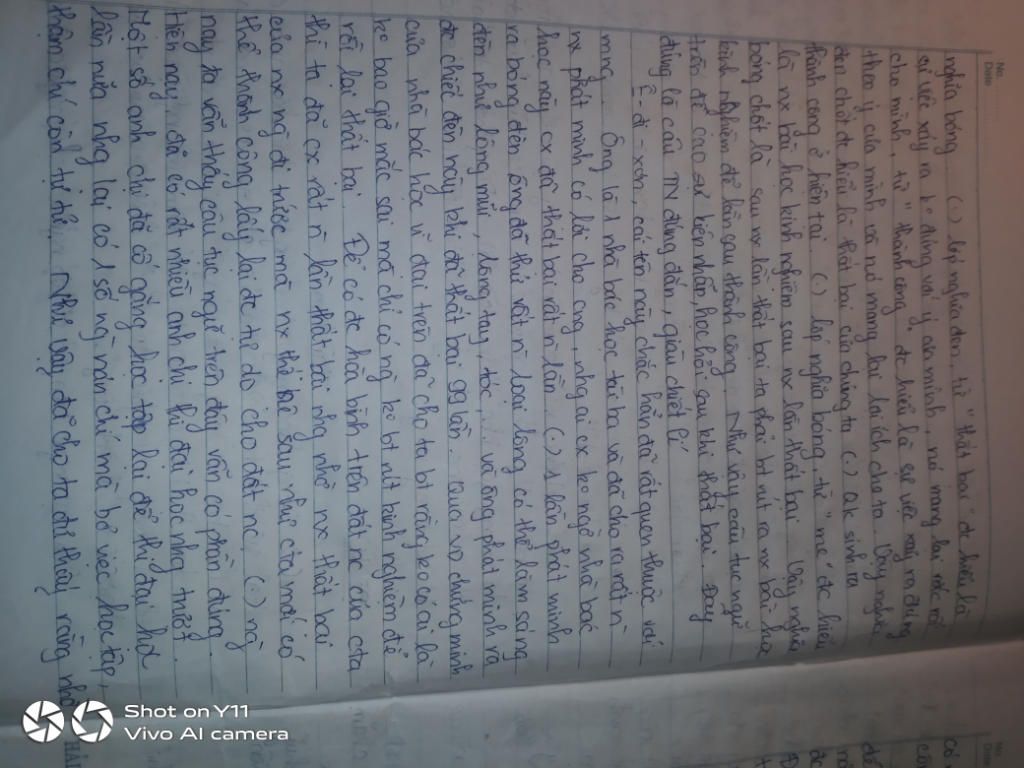 No.
Date
nghĩa bóng. (.) lớp nghĩa đen, từ "thất bại" đc hiểu là
sự việc xảy ra ko đúng với ý của mình, nó mang lại rắc rối
cho mình, từ "thành công" đc hiểu là sự việc xảy ra đúng
theo ý của mình và nó mang lại lợi ích cho ta. Vậy nghĩa
đen chỉ đc hiểu là thất bại của chúng ta (.) qk sinh ra
thành công ở hiện tại. (.) lớp nghĩa bóng, từ "mẹ" đc hiểu
là nx bài học kinh nghiệm sau nx lần thất bại. Vậy nghĩa
bóng chốt là sau nx lần thất bại ta phải bt rút ra nx bài học
kinh nghiệm để lần sau thành công. Như vậy câu tục ngữ
trên đề cao sự kiên nhẫn, học hỏi sau khi thất bại. Đây
đúng là câu TN đúng đắn, giàu chiết lí
Ê-đi-xơn, cái tên này chắc hẳn đã rất quen thuộc với
mng. Ông là 1 nhà bác học tài ba và đã cho ra rất n`
nx phát minh có lời cho cng, nhg ai cx ko ngờ nhà bác
học này cx đã thất bại rất n` lần. (.) 1 lần phát minh
ra bóng đèn ông đã thử rất n` loại lông có thể làm sáng
đèn như lông mũi, lông tay, tóc,... và ông phát minh ra
đc chiếc đèn này khi đã thất bại 99 lần. Qua vc chứng minh
của nhà bác học vĩ đại trên đã cho ta bt rằng ko có ai là
ko bao giờ mắc sai mà chỉ có ng ko bt rút kinh nghiệm để
rồi lại thất bại. Để có đc hòa bình trên đất nc của cta
thì ta đã cx rất n` lần thất bại nhg nhờ nx thất bại
của nx ng đi trước mà nx thế hệ sau như cta mới có
thể thành công lấy lại đc tự do cho đất nc. (.) ng`
nay ta vẫn thấy câu tục ngữ trên đây vẫn có phần đúng
Hiện nay đã có rất nhiều anh chị thi đại học nhg trượt.
Một số anh chị đã cố gắng học tập lại để thi đại học
lần nữa nhg lại có 1 số ng nản chí mà bỏ việc học tập,
thậm chí còn tự tử. Như vậy đã cho ta dễ thấy rằng nhờ
Shot on Y11
Vivo AI camera